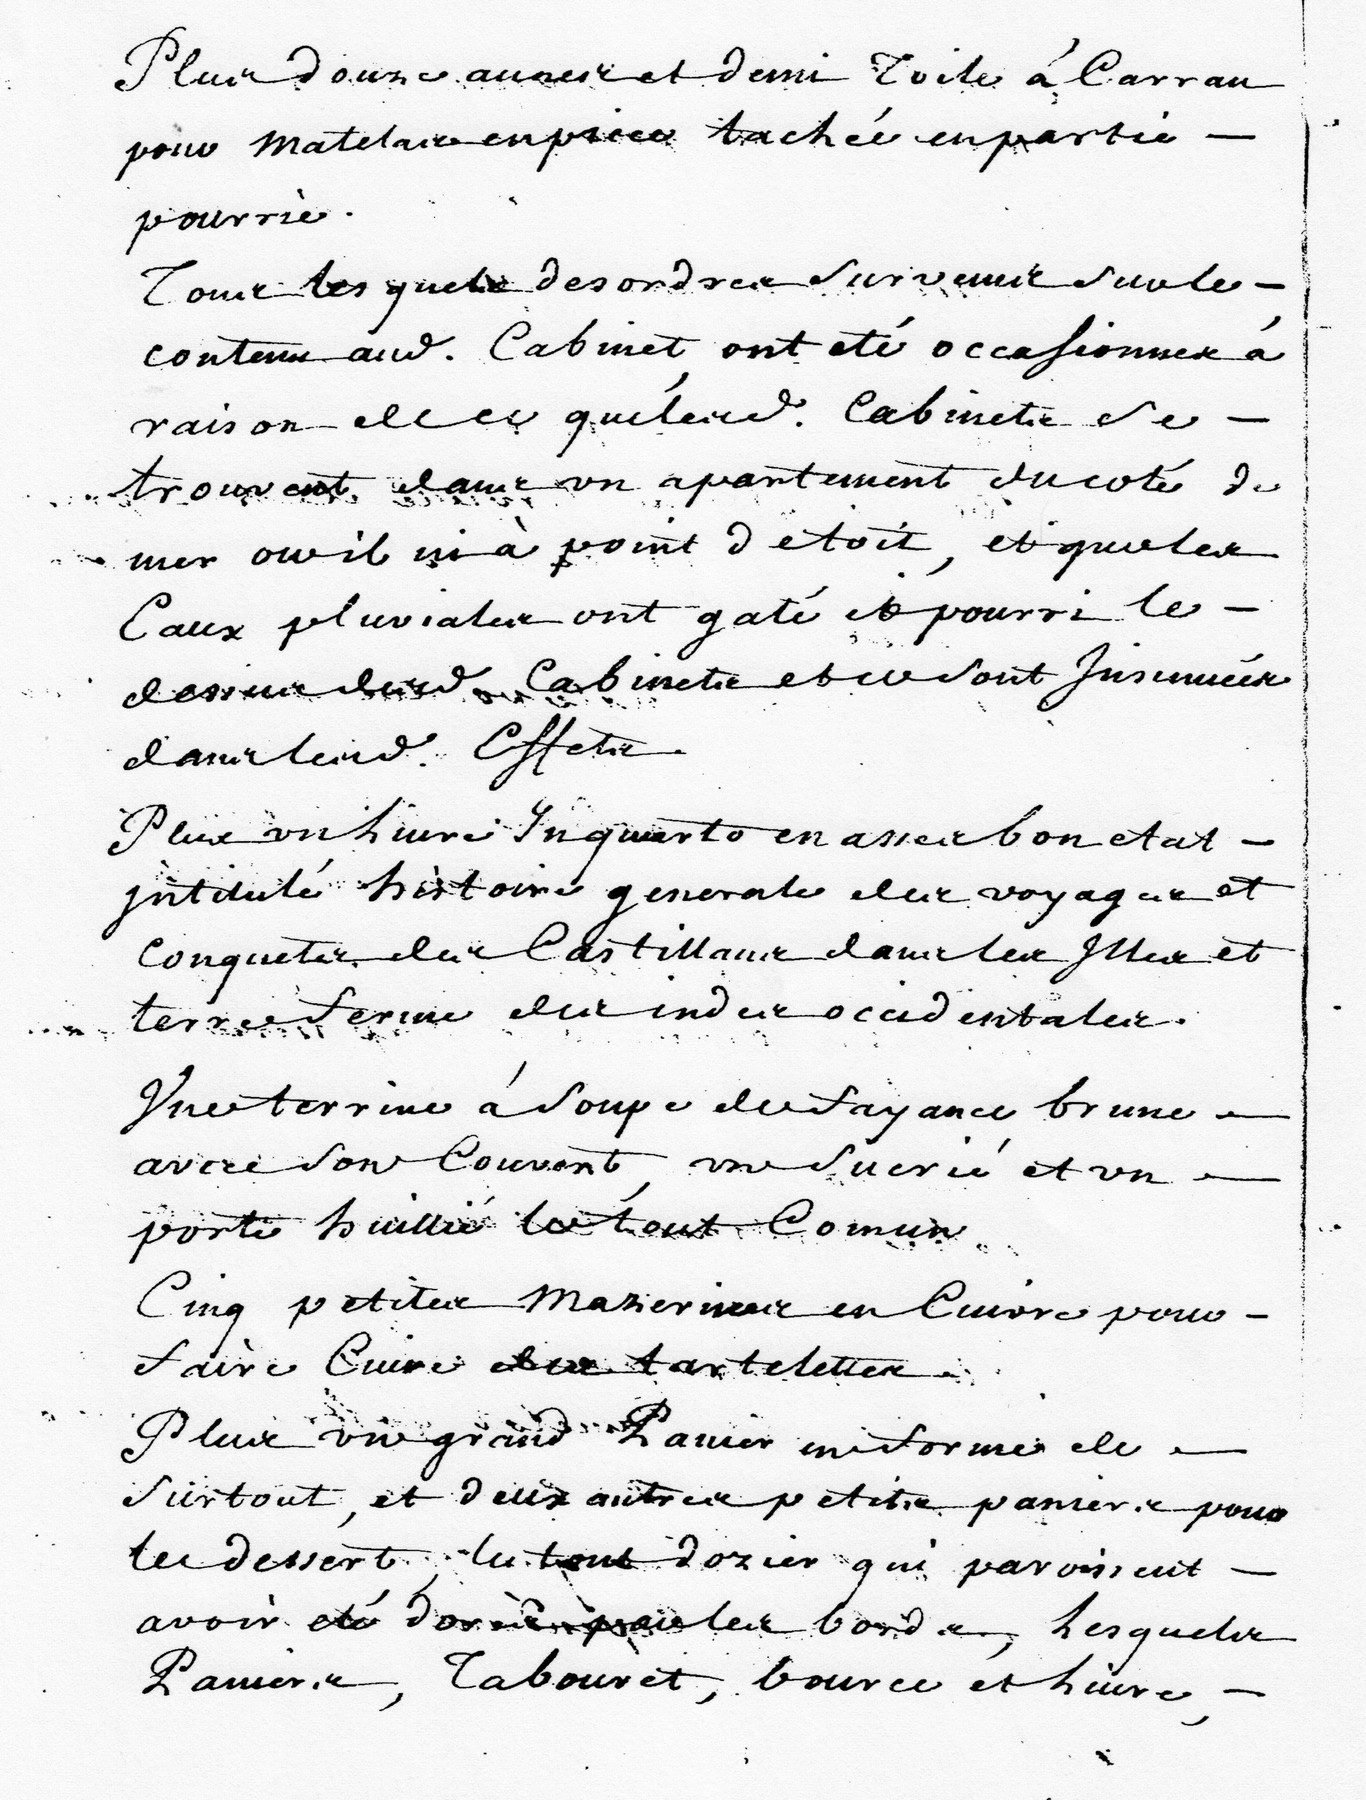 Plus douze aunes et demi Toile à Carrau
pour Matelas en piece tachée en partie —
pourrie.
Tous lesquels desordres survenus sur le —
contenu aud. Cabinet, ont eté occasionnes à
raison de ce que lesd. Cabinets se —
trouvent dans un apartement du coté de
mer ou il ni à point de toit, et que les
Eaux pluviales ont gaté et pourri le —
dessus desd. Cabinets et se sont Insinuées
dans lesd. Effets.
Plus un Livre Inquarto en asses bon etat —
intitulé histoire generale des voyages et
conquetes des Castillans dans les Isles et
terre ferme des indes occidentales.
Une terrine à soupe de fayance brune —
avec son Couvert, un sucrié et un —
porte huillié le tout Comun.
Cinq petites Mazerines en Cuivre pour —
faire Cuire des tartelettes.
Plus un grand Panier en forme de —
surtout, et deux autres petits paniers pour
le dessert, le tout dozier qui paroissent —
avoir eté dorés par les bords, Lesquels
Paniers, Tabouret, bource et Livre, —